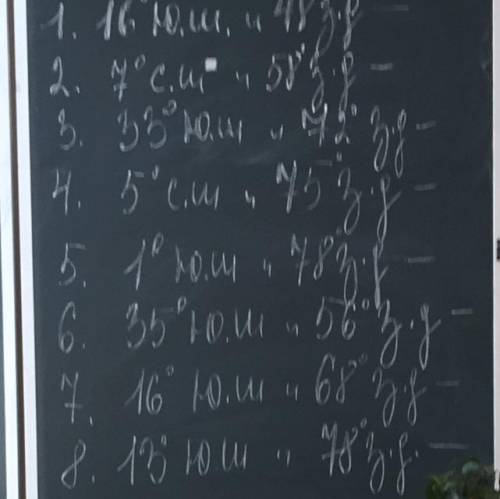 1. 16° Ю.ш. и 48 з.д –
2. 7° с.ш и 58° з.д –
3. 33° Ю.ш и 72° з.д –
4. 5° с.ш и 75° з.д –
5. 1° Ю.ш и 78° з.д –
6. 35° Ю.ш и 56° з.д –
7. 16° Ю.ш и 68° з.д –
8. 13° Ю.ш и 78° з.д. –